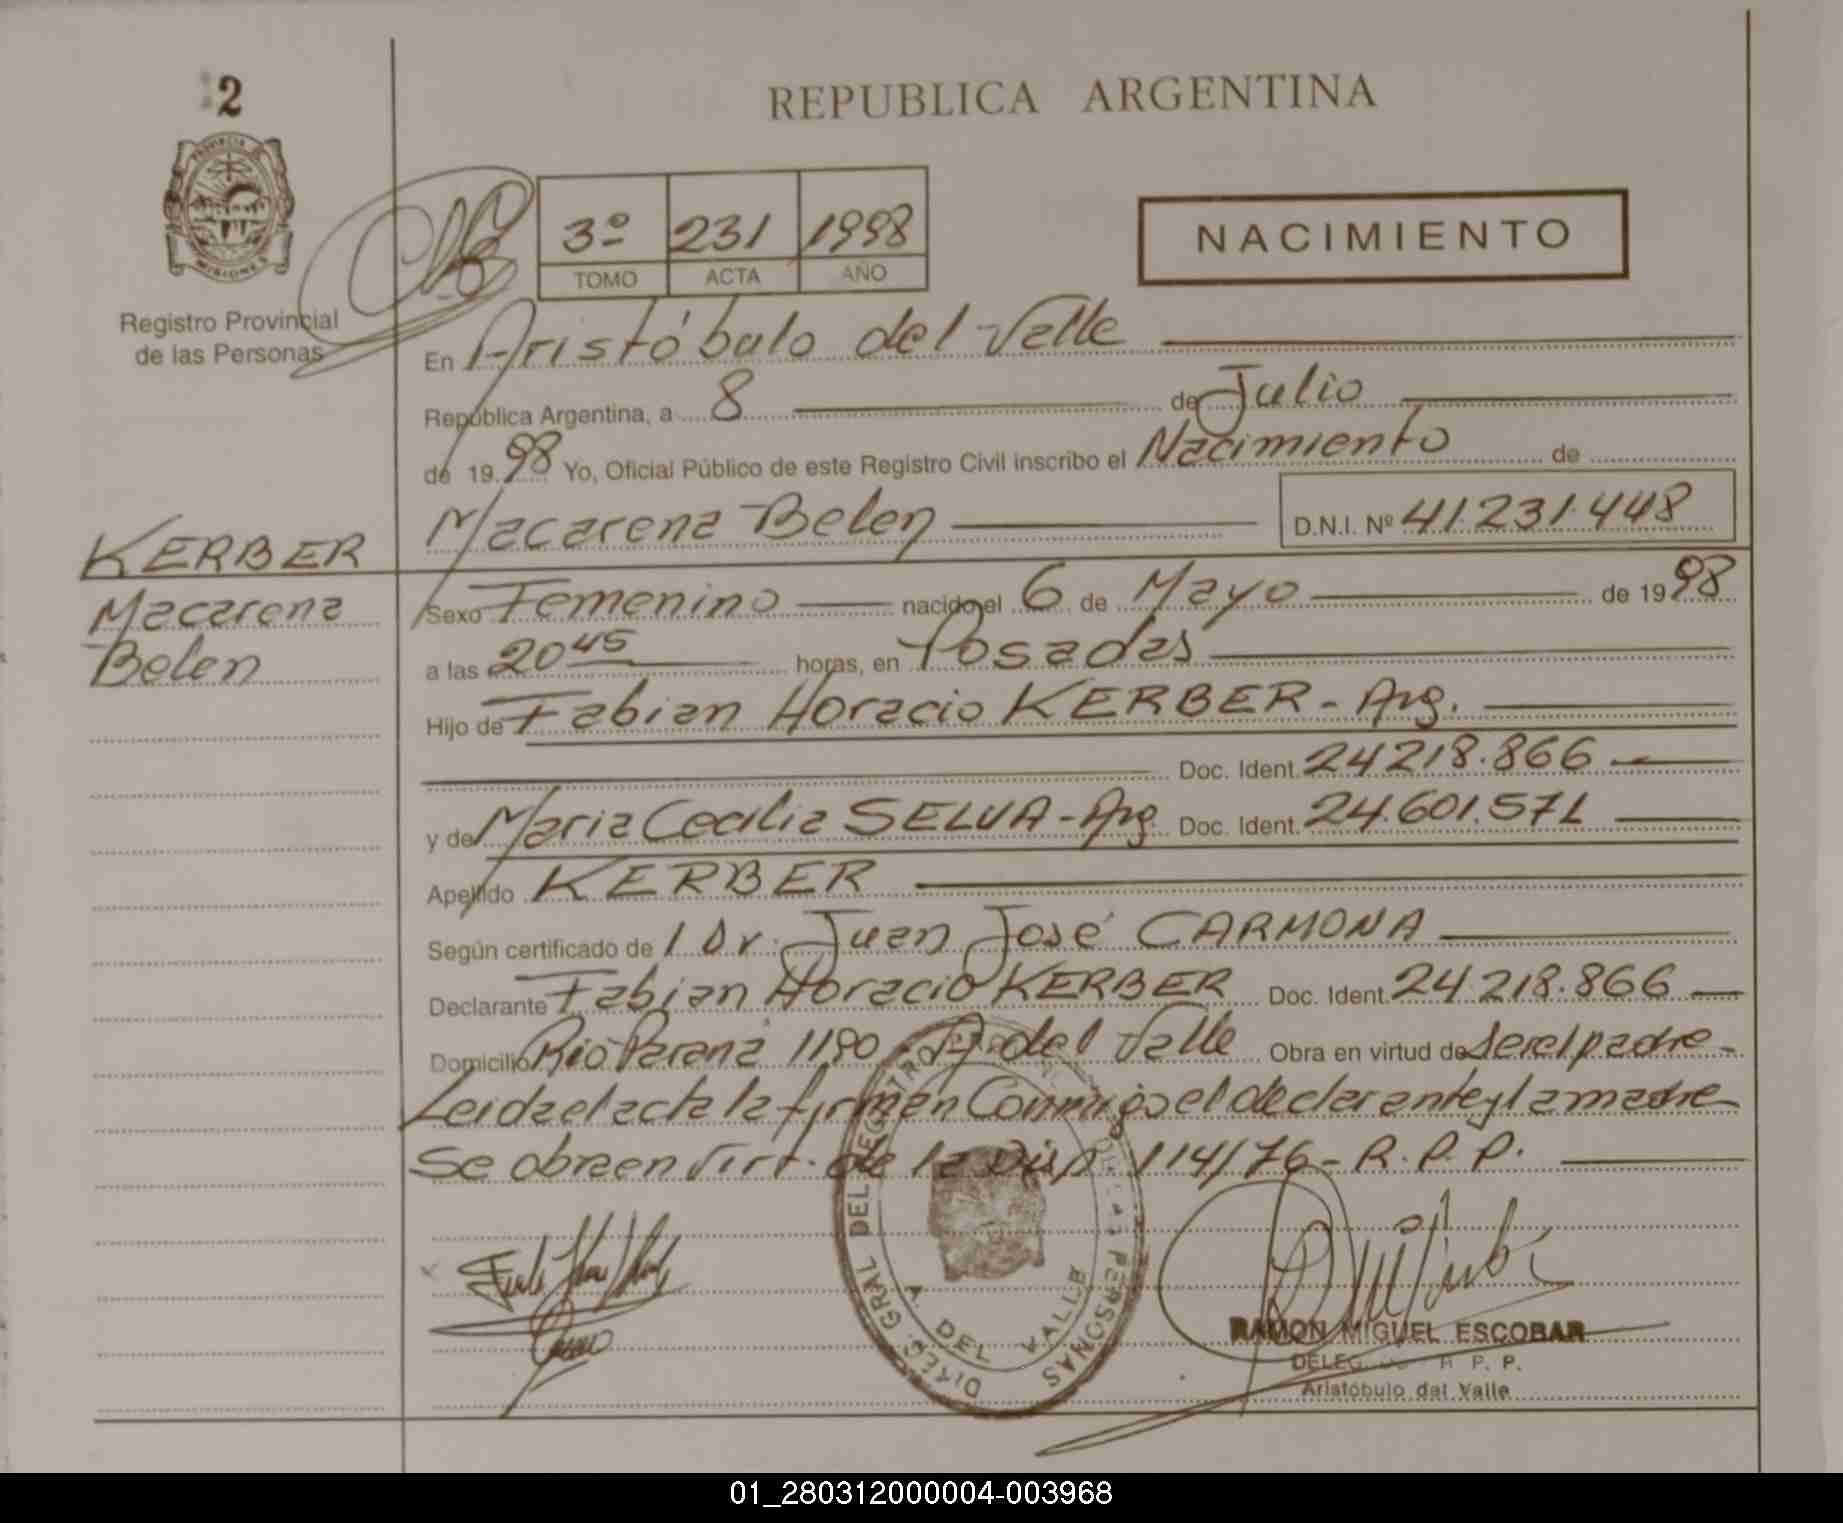 2
REPUBLICA ARGENTINA
PROVINCIA DE
MISIONES
Registro Provincial
de las Personas
3º 231 1998
TOMO ACTA AÑO
NACIMIENTO
En Aristóbulo del Valle
República Argentina, a 8 de Julio
de 1998 Yo, Oficial Público de este Registro Civil inscribo el Nacimiento de
Macarena Belen D.N.I. Nº 41.231.448
KERBER
Macarena
Belen
Sexo Femenino nacido el 6 de Mayo de 1998
a las 20 45 horas, en Posadas
Hijo de Fabian Horacio KERBER - Arg.
Doc. Ident. 24.218.866
y de Maria Cecilia SELVA - Arg. Doc. Ident. 24.601.571
Apellido KERBER
Según certificado de l Dr. Juan José CARMONA
Declarante Fabian Horacio KERBER Doc. Ident. 24.218.866
Domicilio Rio Paraná 1190 - A. del Valle Obra en virtud de ser el padre -
Leida el acta la firman Conmigo el declarante y la madre
Se obra en virt. de la Disp. 114/76 - R.P.P.
DIREC. GRAL DEL REGISTRO PERSONAS
A. DEL VALLE
RAMON MIGUEL ESCOBAR
DELEG. R. P. P.
Aristóbulo del Valle
01_280312000004-003968